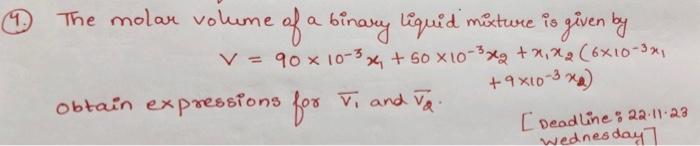 4. The molar volume of a binary liquid mixture is given by
V = 90 × 10⁻³ x₁ + 50 × 10⁻³ x₂ + x₁ x₂ (6×10⁻³ x₁
+ 9×10⁻³ x₂)
obtain expressions for V̅₁ and V̅₂.
[Deadline : 22.11.23
Wednesday]